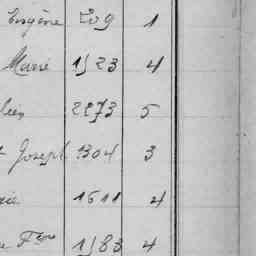 Eugène 209 1
Marie 1523 4
2273 5
Joseph 1304 3
1611 4
Fçois 1583 4